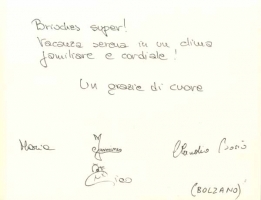 Brioches super!
Vacanza serena in un clima
familiare e cordiale!
Un grazie di cuore
Maria
Claudio
(BOLZANO)